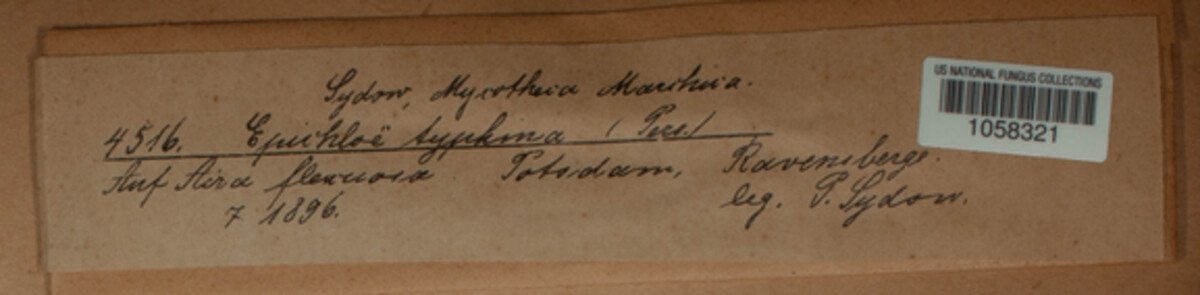 Sydow, Mycotheca Marchica.
4516. Epichloë typhina (Pers.)
Auf Aira flexuosa Potsdam, Ravensberge.
7 1896. leg. P. Sydow.
US NATIONAL FUNGUS COLLECTIONS
1058321